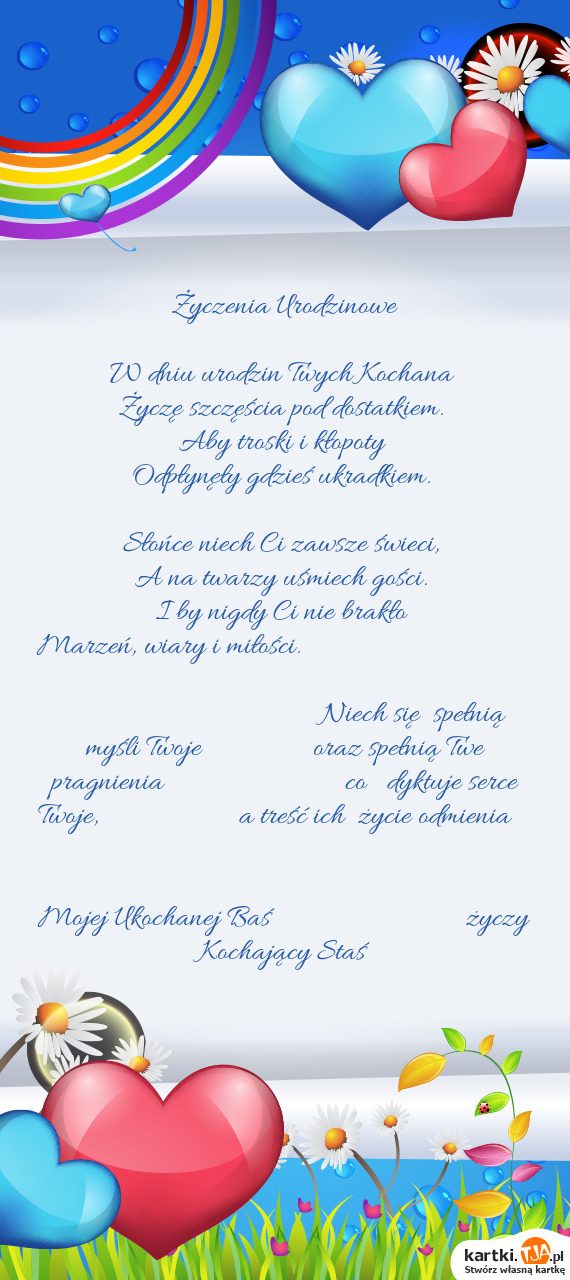 Życzenia Urodzinowe
W dniu urodzin Twych Kochana
Życzę szczęścia pod dostatkiem.
Aby troski i kłopoty
Odpłynęły gdzieś ukradkiem.
Słońce niech Ci zawsze świeci,
A na twarzy uśmiech gości.
I by nigdy Ci nie brakło
Marzeń, wiary i miłości.
Niech się spełnią
myśli Twoje oraz spełnią Twe
pragnienia co dyktuje serce
Twoje, a treść ich życie odmienia
Mojej Ukochanej Baś życzy
Kochający Staś
kartki.TJA.pl
Stwórz własną kartkę